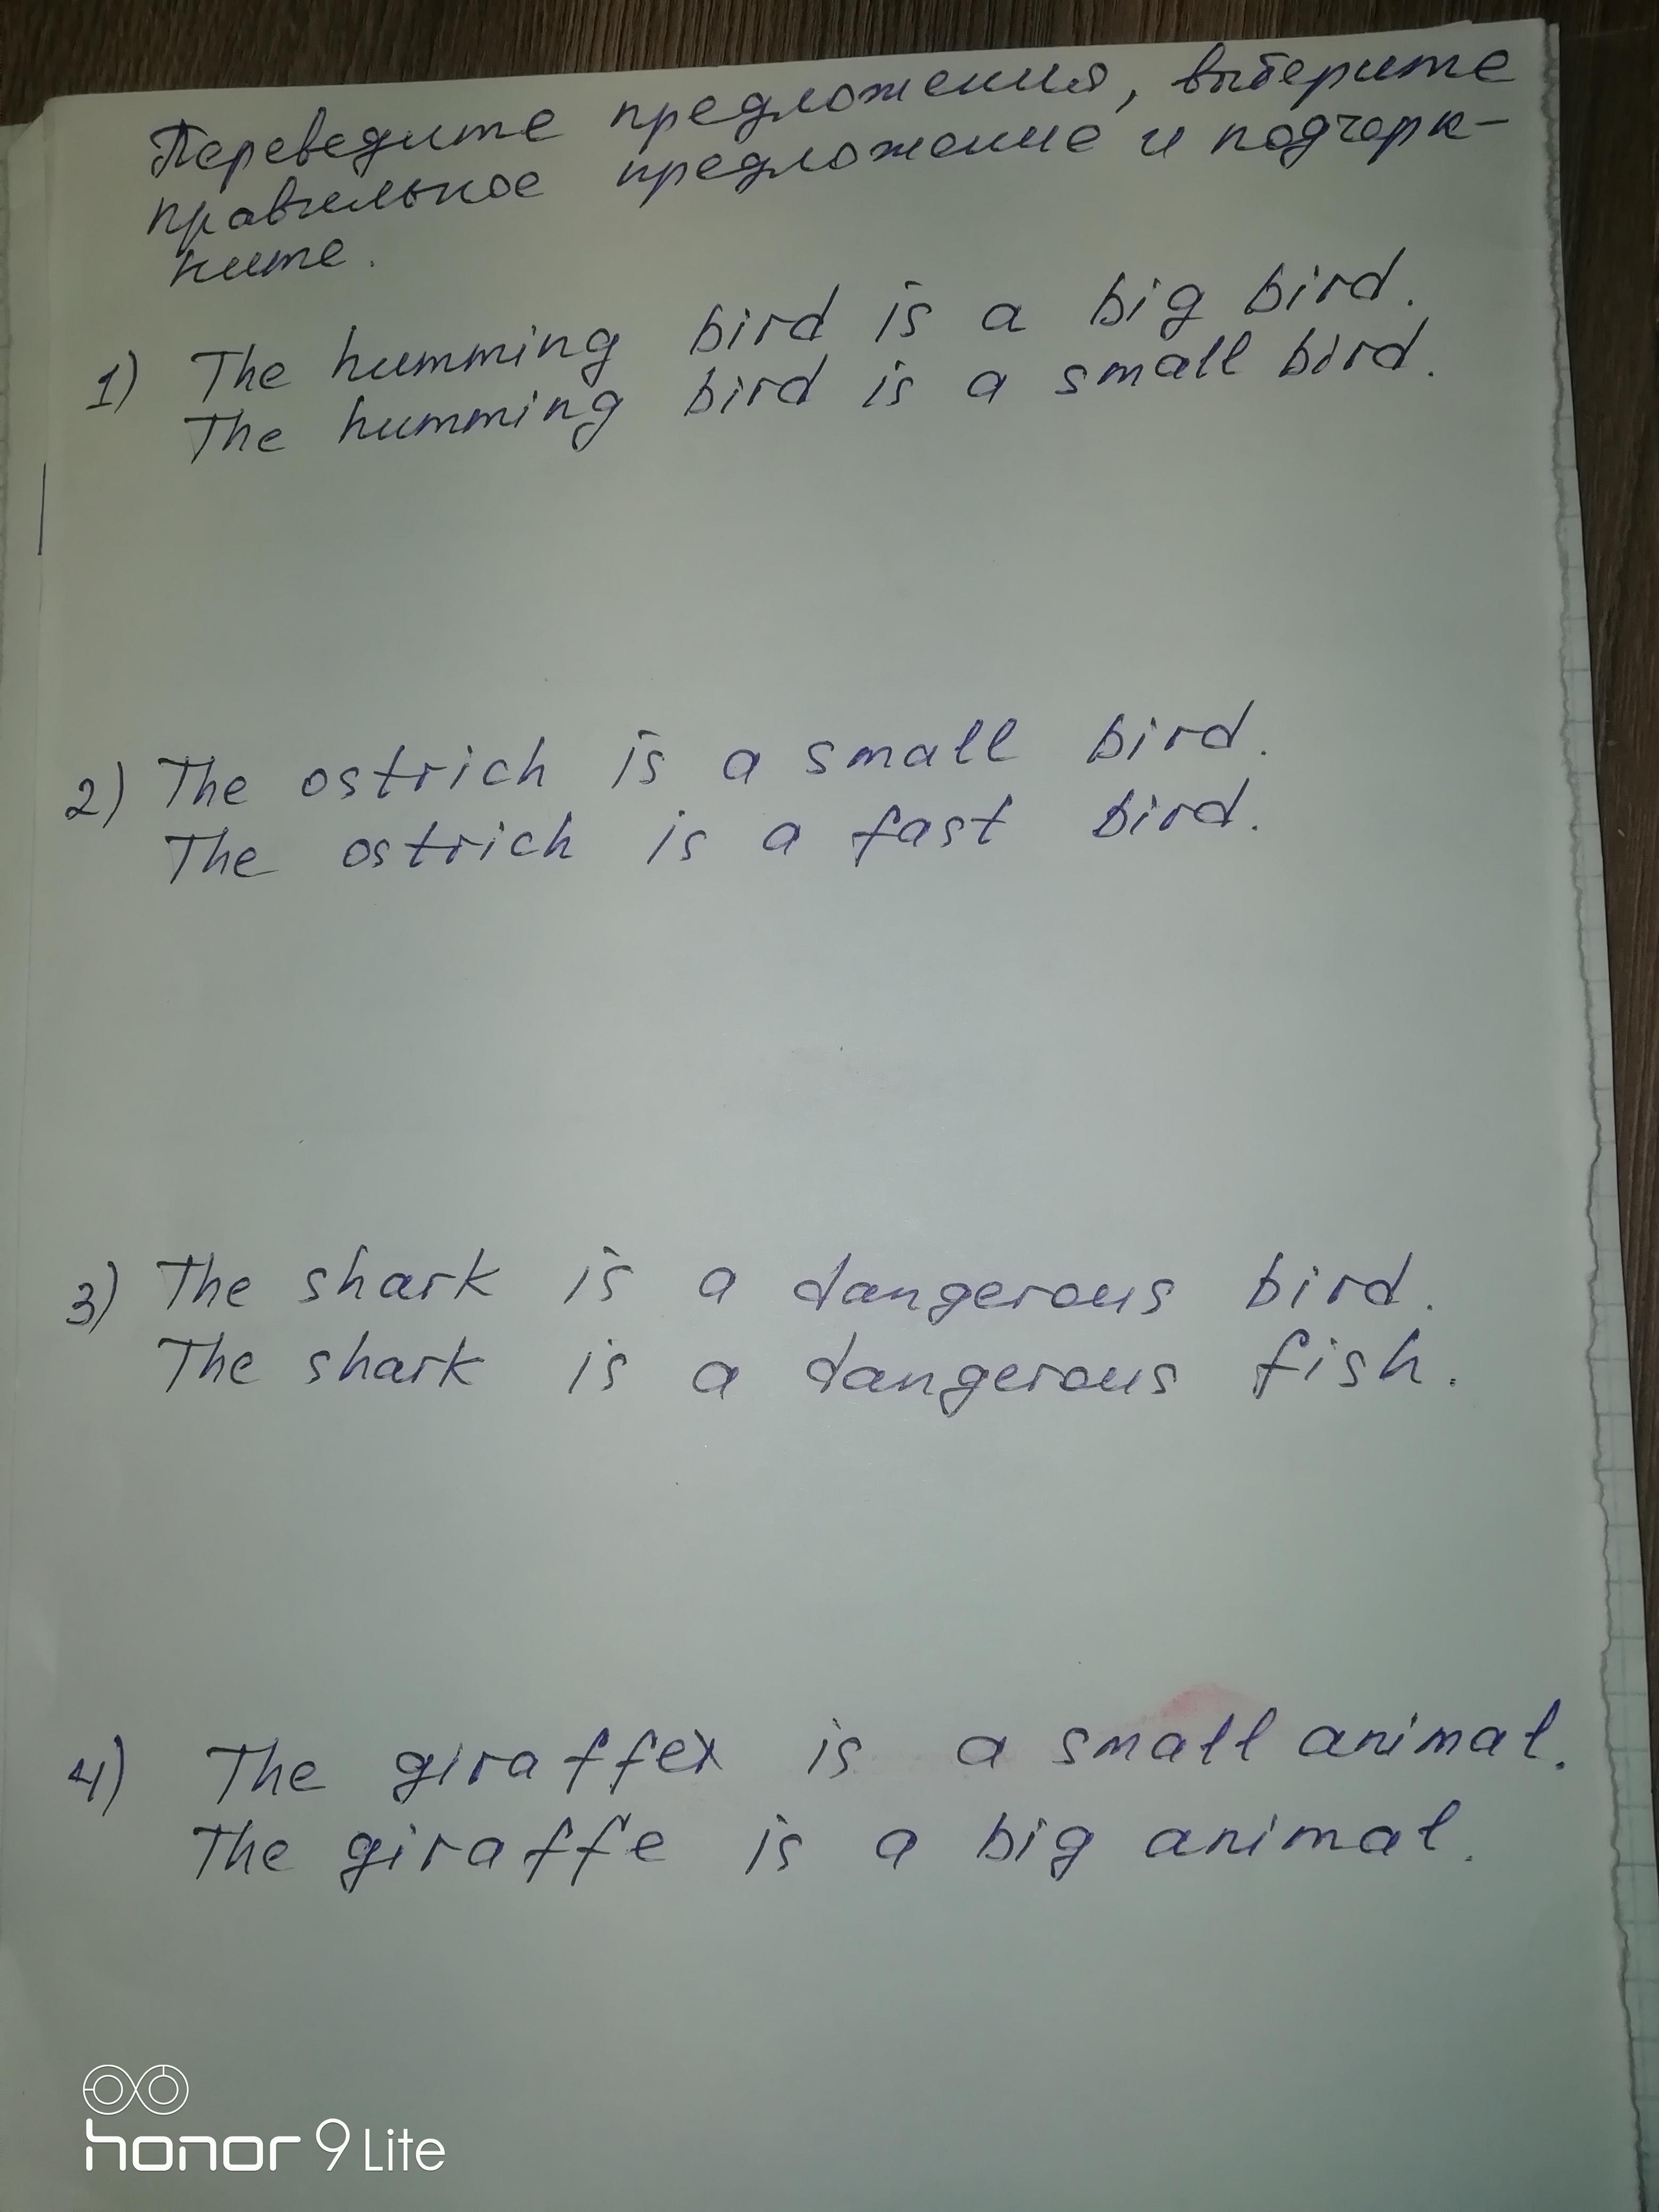 Переведите предложения, выберите
правильное предложение и подчерк-
ните.
1) The humming bird is a big bird.
The humming bird is a small bird.
2) The ostrich is a small bird.
The ostrich is a fast bird.
3) The shark is a dangerous bird.
The shark is a dangerous fish.
4) The giraffe is a small animal.
The giraffe is a big animal.
honor 9 Lite